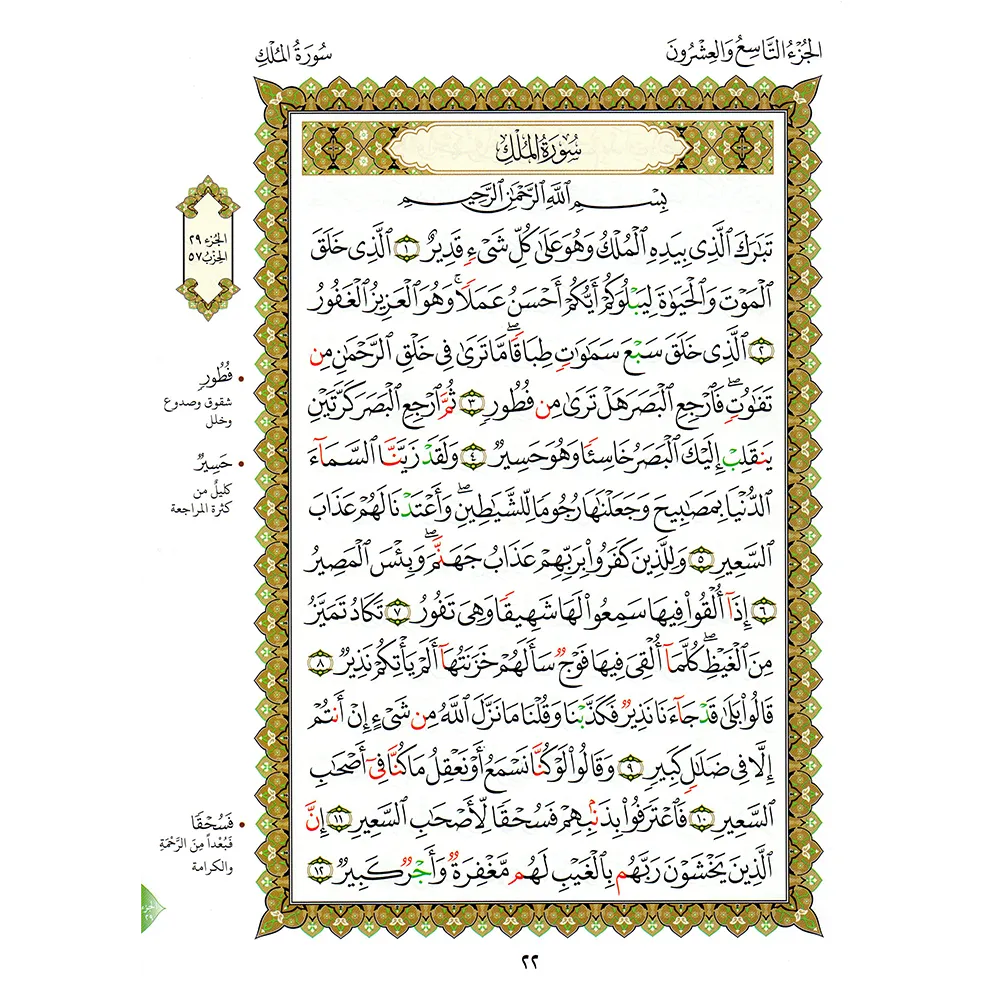 الجُزْءُ التَّاسِعُ وَالعِشْرُونَ
سُورَةُ المُلْكِ
سُورَةُ المُلْكِ
بِسْمِ ٱللَّهِ ٱلرَّحْمَٰنِ ٱلرَّحِيمِ
تَبَٰرَكَ ٱلَّذِى بِيَدِهِ ٱلْمُلْكُ وَهُوَ عَلَىٰ كُلِّ شَىْءٍ قَدِيرٌ ١ ٱلَّذِى خَلَقَ
ٱلْمَوْتَ وَٱلْحَيَوٰةَ لِيَبْلُوَكُمْ أَيُّكُمْ أَحْسَنُ عَمَلًا ۚ وَهُوَ ٱلْعَزِيزُ ٱلْغَفُورُ
٢ ٱلَّذِى خَلَقَ سَبْعَ سَمَٰوَٰتٍ طِبَاقًا ۖ مَّا تَرَىٰ فِى خَلْقِ ٱلرَّحْمَٰنِ مِن
تَفَٰوُتٍ ۖ فَٱرْجِعِ ٱلْبَصَرَ هَلْ تَرَىٰ مِن فُطُورٍ ٣ ثُمَّ ٱرْجِعِ ٱلْبَصَرَ كَرَّتَيْنِ
يَنقَلِبْ إِلَيْكَ ٱلْبَصَرُ خَاسِئًا وَهُوَ حَسِيرٌ ٤ وَلَقَدْ زَيَّنَّا ٱلسَّمَآءَ
ٱلدُّنْيَا بِمَصَٰبِيحَ وَجَعَلْنَٰهَا رُجُومًا لِّلشَّيَٰطِينِ ۖ وَأَعْتَدْنَا لَهُمْ عَذَابَ
ٱلسَّعِيرِ ٥ وَلِلَّذِينَ كَفَرُوا۟ بِرَبِّهِمْ عَذَابُ جَهَنَّمَ ۖ وَبِئْسَ ٱلْمَصِيرُ
٦ إِذَآ أُلْقُوا۟ فِيهَا سَمِعُوا۟ لَهَا شَهِيقًا وَهِىَ تَفُورُ ٧ تَكَادُ تَمَيَّزُ
مِنَ ٱلْغَيْظِ ۖ كُلَّمَآ أُلْقِىَ فِيهَا فَوْجٌ سَأَلَهُمْ خَزَنَتُهَآ أَلَمْ يَأْتِكُمْ نَذِيرٌ ٨
قَالُوا۟ بَلَىٰ قَدْ جَآءَنَا نَذِيرٌ فَكَذَّبْنَا وَقُلْنَا مَا نَزَّلَ ٱللَّهُ مِن شَىْءٍ إِنْ أَنتُمْ
إِلَّا فِى ضَلَٰلٍ كَبِيرٍ ٩ وَقَالُوا۟ لَوْ كُنَّا نَسْمَعُ أَوْ نَعْقِلُ مَا كُنَّا فِىٓ أَصْحَٰبِ
ٱلسَّعِيرِ ١٠ فَٱعْتَرَفُوا۟ بِذَنۢبِهِمْ فَسُحْقًا لِّأَصْحَٰبِ ٱلسَّعِيرِ ١١ إِنَّ
ٱلَّذِينَ يَخْشَوْنَ رَبَّهُم بِٱلْغَيْبِ لَهُم مَّغْفِرَةٌ وَأَجْرٌ كَبِيرٌ ١٢
الجُزء ٢٩
الحِزْبُ ٥٧
• فُطُورٍ
شقوق وصدوع
وخلل
• حَسِيرٌ
كليلٌ من
كثرة المراجعة
• فَسُحْقًا
فَبُعْداً مِنَ الرَّحْمَةِ
والكرامة
جزء
٢٩
٢٢